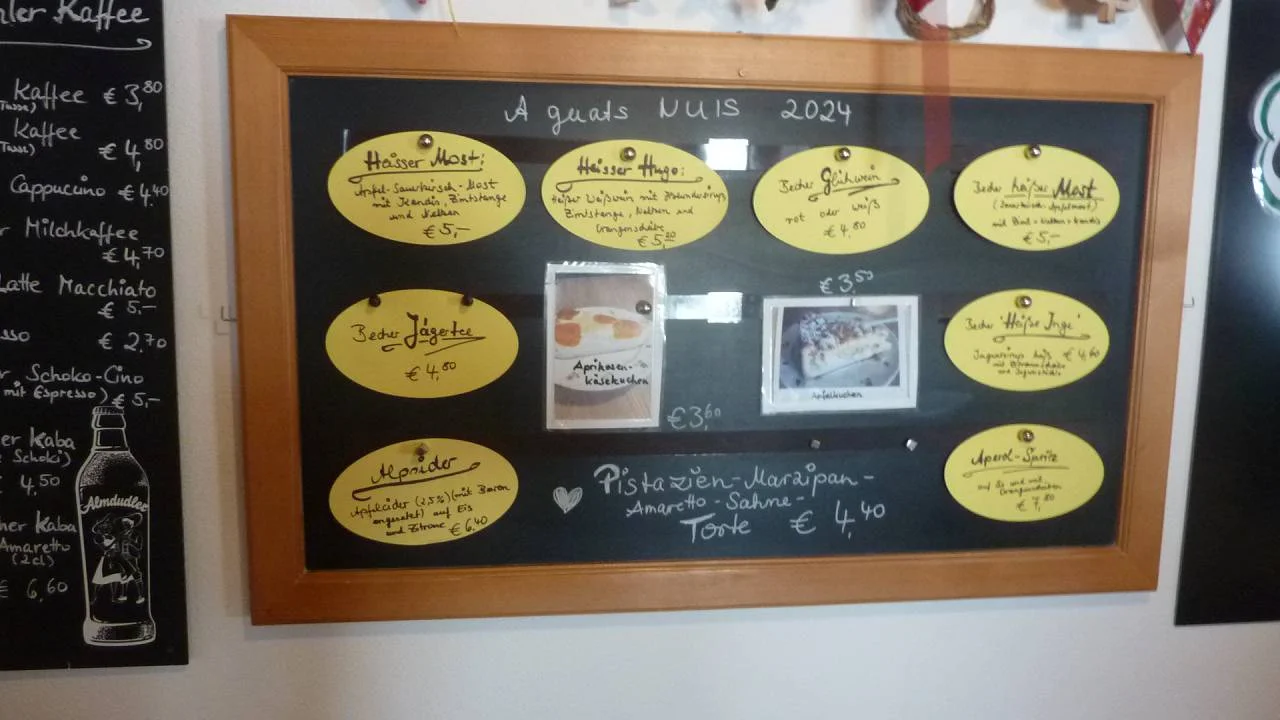 ler Kaffee
Kaffee € 3,80
Tasse)
Kaffee
Tasse) € 4,80
Cappucino € 4,40
r Milchkaffee
€ 4,70
Latte Macchiato
€ 5,-
sso € 2,70
r Schoko-Cino
mit Espresso) € 5,-
er Kaba
Schoki)
€ 4,50
her Kaba
Amaretto
(2cl)
€ 6,60
Almdudler
A guats NUIS 2024
Heisser Most:
Apfel-Sauerkirsch-Most
mit Kandis, Zimtstange
und Nelken
€ 5,-
Heisser Hugo:
Heißer Weißwein mit Holundersirup,
Zimtstange, Nelken und
Orangenscheibe
€ 5,20
Becher Glühwein
rot oder weiß
€ 4,80
Becher heißer Most
(Sauerkirsch-Apfelmost)
mit Zimt + Nelken + Kandis
€ 5,-
Becher Jägertee
€ 4,80
Aprikosen-
käsekuchen
€ 3,60
€ 3,50
Apfelkuchen
Becher 'Heiße Inge'
Ingwersirup heiß € 4,60
mit Zitronenscheibe
und Ingwerstücke
Alpcider
Apfelcider (2,5%) (mit Beeren
angesetzt) auf Eis
und Zitrone € 6,40
Pistazien-Marzipan-
Amaretto-Sahne-
Torte € 4,40
Aperol-Spritz
auf Eis und mit
Orangenscheiben
€ 7,80